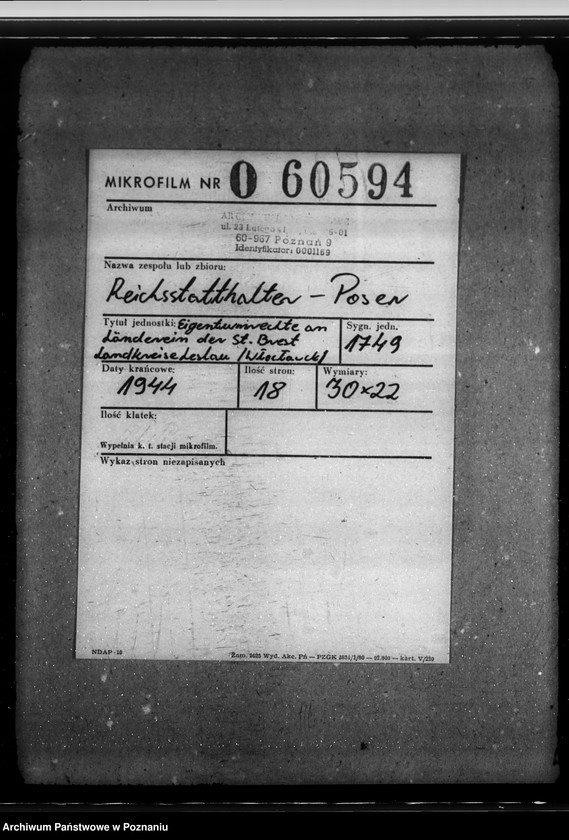 MIKROFILM NR O 60594
Archiwum
60-967 Poznań 9
Identyfikator: 0001169
Nazwa zespołu lub zbioru:
Reichsstatthalter – Posen
Tytuł jednostki: Eigentumrechte an
Ländereien der St. Brest
Landkreise Leslau /Włocławek/
Sygn. jedn.
1749
Daty krańcowe:
1944
Ilość stron:
18
Wymiary:
30×22
Ilość klatek:
Wypełnia k. t. stacji mikrofilm.
Wykaz stron niezapisanych
NDAP-10
Zam. Wyd. Akc. Pń — PZGK — kart. V/220
Archiwum Państwowe w Poznaniu